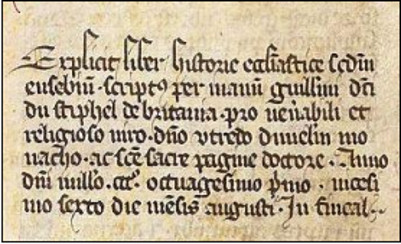 Explicit liber historie ecclīastice scd̄m
eusebiū · script⁹ per manū guill'mi dc̄i
du stiphel de britania · pro uen'abili et
religioso uiro · dn̄o utredo dunelm̄ mo
nacho · ac sc̄e sacre pagine doctore · Anno
dn̄i mill'o · ccc̄ · octuagesimo p'mo · uicesi
mo sexto die mēsis augusti · In fincal·